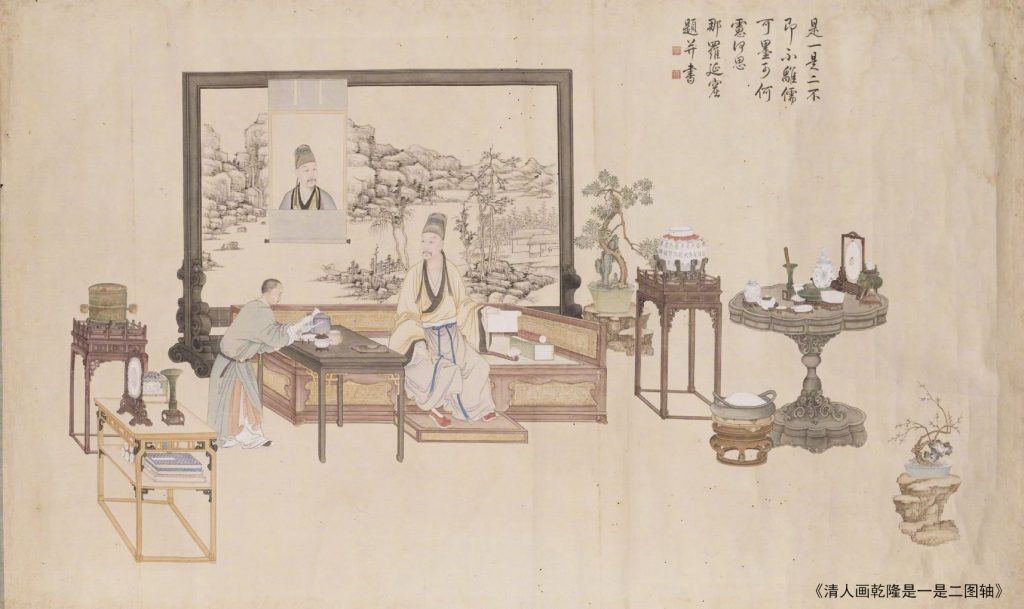 是一是二不
即不離儒
可墨可何
慮何思
那羅延窟
題并書
《清人画乾隆是一是二图轴》